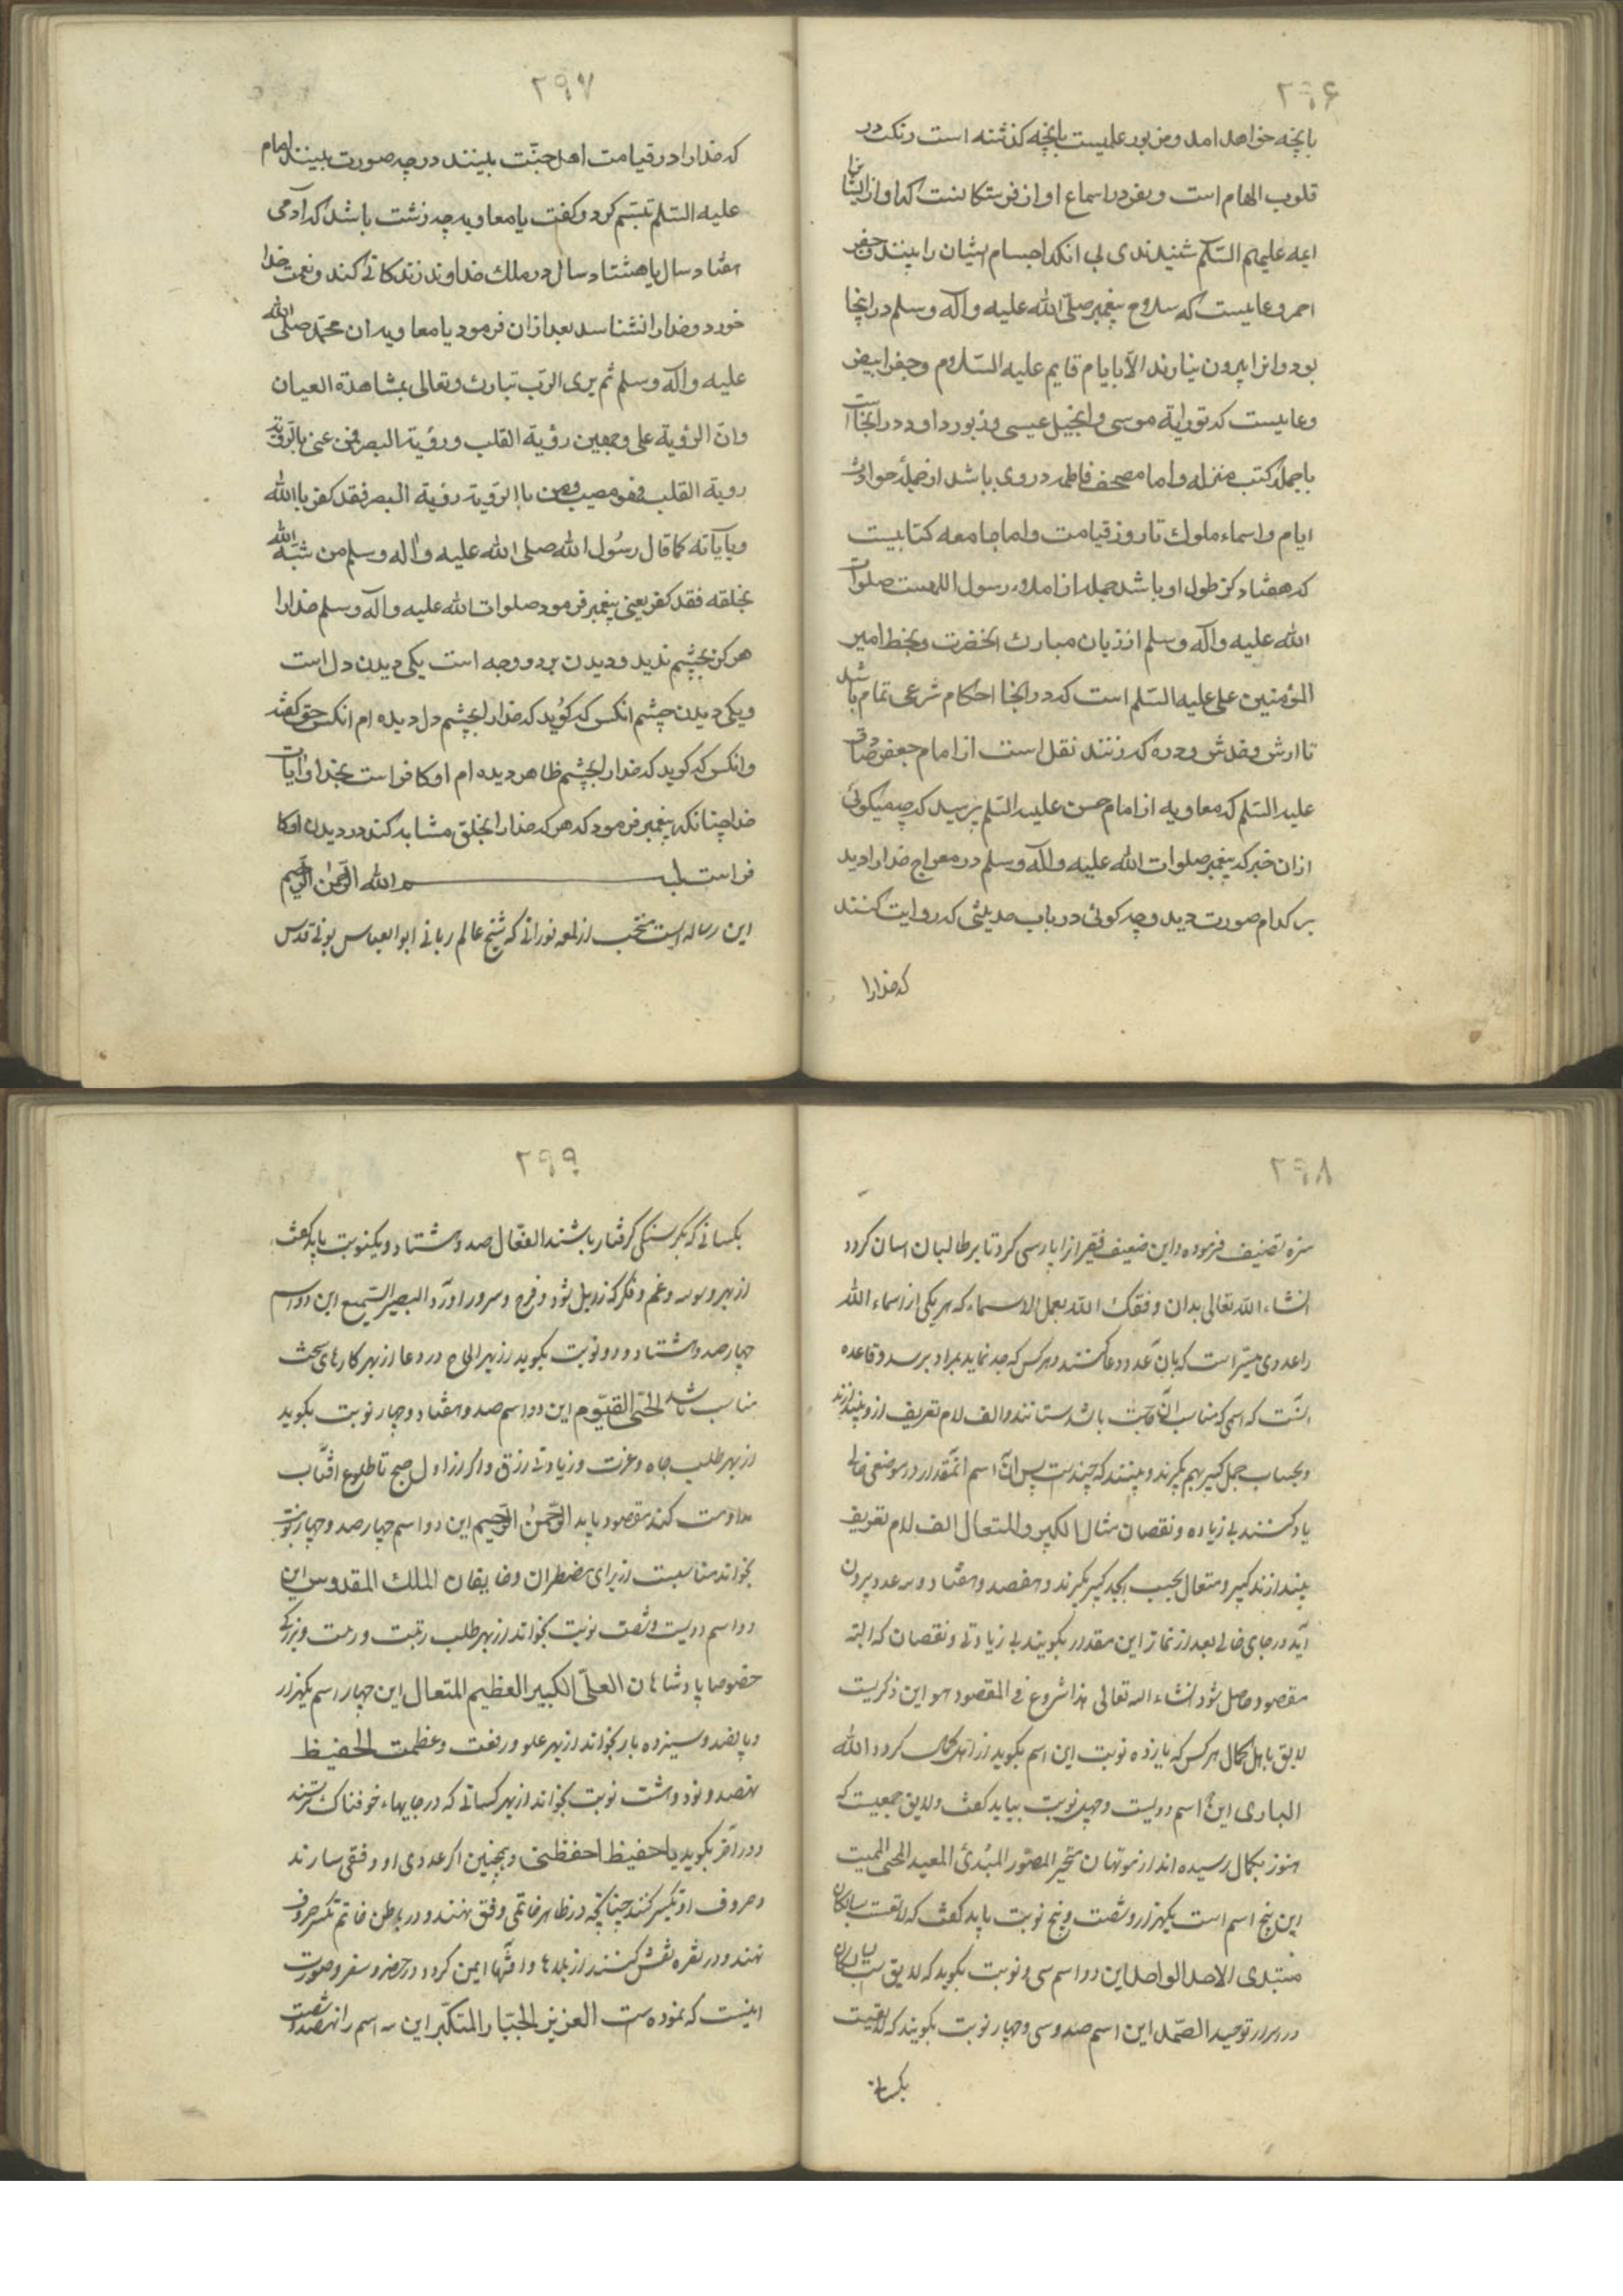 ۲۹۶
بانچه خواهد امد و مزبور علمیست بانچه کذشته است و نکت در
قلوب الهام است و نقر در اسماع اواز فرستکانست که اواز ایشانرا
ایمه علیهم السّلم شنیدندی بی انکه اجسام ایشان را بینند و جفر
احمر وعاییست که سلاح پیغمبر صلّی الله علیه وآله وسلم در اینجا
بود وانرا بیرون نیارند الّا بایام قایم علیه السّلام وجفر ابیض
وعاییست که توریة موسی وانجیل عیسی وزبور داود در اینجا است
با جملهٔ کتب منزله واما مصحف فاطمه در وی باشد از جملهٔ حوادث
ایام واسماء ملوک تا روز قیامت واما جامعه کتابیست
که هفتاد کز طول او باشد جمله از املاء رسول اللهست صلوات
الله علیه وآله وسلم از زبان مبارک انحضرت وبخط امیر
المؤمنین علی علیه السّلم است که در اینجا احکام شرعی تمام باشد
تا ارش وخدش ودره که زنند نقل است از امام جعفر صادق
علیه السّلم که معاویه از امام حسن علیه السّلم پرسید که چه میکوئی
ازان خبر که پیغمبر صلوات الله علیه وآله وسلم در معراج خدارا دید
بر کدام صورت دید وچه کوئی در باب حدیثی که روایت کنند
که خدارا
۲۹۷
که خدارا در قیامت اهل جنّت ببینند در چه صورت ببینند امام
علیه السّلم تبسّم کرد وکفت یا معاویه چه زشت باشد که ادمی
هفتاد سال یا هشتاد سال در ملک خداوند زندکانی کند ونعمت خدا
خورد وخدارا نشناسد بعد ازان فرمود یا معاویه ان محمّد صلی الله
علیه وآله وسلم ثم یری الرّب تبارک وتعالی بمشاهدة العیان
وانّ الرؤیة علی وجهین رؤیة القلب ورؤیة البصر فمن عنی بالرّویة
رویة القلب فهو مصیب ومن بالرّویة رؤیة البصر فقد کفر بالله
وبآیاته کما قال رسُول الله صلی الله علیه وآله وسلم من شبّه الله
بخلقه فقد کفر یعنی پیغمبر فرمود صلوات الله علیه وآله وسلم خدارا
هرکز بچشم ندید ودیدن بر دو وجه است یکی دیدن دل است
ویکی دیدن چشم انکس که کوید که خدارا بچشم دل دیده ام انکس حق کفت
وانکس که کوید که خدارا بچشم ظاهر دیده ام او کافر است بخدا وآیات
خدا چنانکه پیغمبر فرمود که هر که خدارا بخلق مشابه کند در دیدن او کا
فر است بسم الله الرّحمن الرّحیم
این رساله ایست منتخب از لمعه نورانی که شیخ عالم ربانی ابو العباس بونی قدس
۲۹۸
سره تصنیف فرموده واین ضعیف فقیر انرا پارسی کرد تا بر طالبان اسان کردد
انشاء الله تعالی بدان وفقک الله بعمل الاسماء که هر یکی از اسماء الله
را عددی میسّر است که بان عدد دعا کنند وهر کس که جد نماید بمراد برسد وقاعده
انست که اسمی که مناسب ان حاجت باشد بستانند والف لام تعریف ازو بیندازند
وبحساب جمل کبیر بهم بکیرند وببینند که چندست پس ان اسم انمقدار در موضعی خالی
یاد کنند بی زیاده ونقصان مثال الکبیر والمتعال الف لام تعریف
بیندازند کبیر ومتعال بحسب ابجد کبیر بکیرند وهفصد وهفتاد وسه عدد بیرون
آید در جای خالی بعد از نماز این مقدار بکویند بی زیادتی ونقصان که البته
مقصود حاصل شود انشاء الله تعالی هذا شروع فی المقصود هو این ذکریست
لایق باهل کمال هر کس که یازده نوبت این اسم بکوید از اهل کمال کردد الله
الباری این اسم دویست وچهل نوبت بباید کفت ولایق جمعیت که
هنوز بکمال رسیده اند از موتهان متحیر المصوّر المبُدئ المعید المحیی الممیت
این پنج اسم است یکهزار وشصت وپنج نوبت باید کفت که لایقست سالکان
مبتدی الاحد الواحد این دو اسم سی ونوبت بکوید که لایق
در اسرار توحید الصّمد این اسم صد وسی وچهار نوبت بکویند که لایقیت
بکسانی
۲۹۹
بکسانی که بکرسنکی کرفتار باشند الفعّال صد وهشتاد ویکنوبت باید کفت
از بهر وسوسه وغم وفکر که زایل شود وفرح وسرور اورد البصیر السّمیع این دو اسم
چهار صد وهشتاد ودو نوبت بکوید از بهر الحاح در دعا از بهر کارهای سخت
مناسب باشد الحیّ القیّوم این دو اسم صد وهفتاد وچهار نوبت بکوید
از بهر طلب جاه وعزت وزیادتی رزق واکر از اول صبح تا طلوع افتاب
مداومت کند مقصود یابد الرّحمنُ الرّحیم این دو اسم چهار صد وچهار نوبت
بخواند مناسبت از برای مضطران وخایفان الملک القدوس این
دو اسم دویست وشصت نوبت بخواند از بهر طلب رتبت ورحمت وبزرکی
خصوصا پادشاهان العلیّ الکبیر العظیم المتعال این چهار اسم یکهزار
وپانصد وسیزده بار بخواند از بهر علو ورفعت وعظمت الحفیظ
نهصد ونود وهشت نوبت بخواند از بهر کسانی که در جایهاء خوفناک ترسند
ودر آخر بکوید یا حفیظ احفظنی وهمچنین اکر عددی او وفقی سازند
وحروف او تکسیر کنند چنانکه در ظاهر خاتمی وفق نهند ودر باطن خاتم تکسیر حروف
نهند ودر نقره نقش کنند از بلاها وافتها ایمن کردد در حضر وسفر وصورت
اینست که نموده است العزیز الجبّار المتکبّر این سه اسم را نهصد وشصت